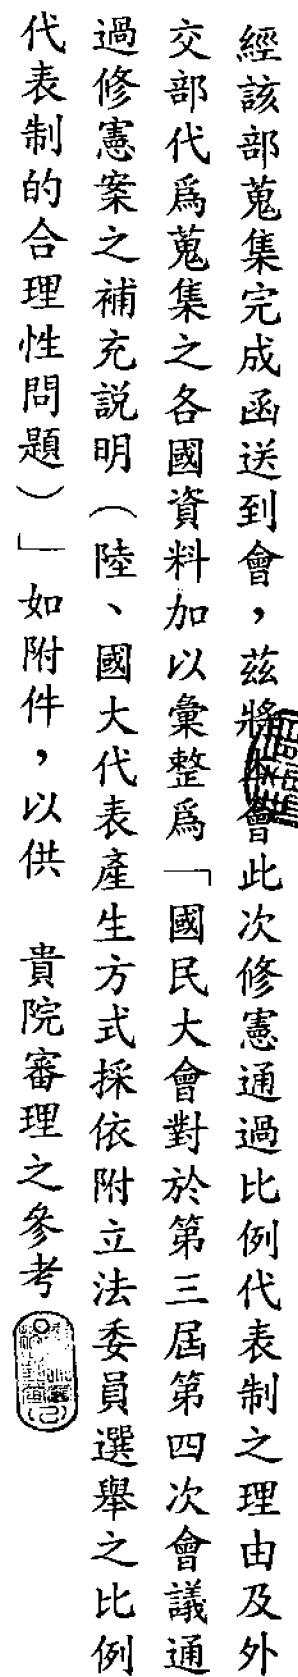 經該部蒐集完成函送到會，茲將本會此次修憲通過比例代表制之理由及外
交部代為蒐集之各國資料加以彙整為「國民大會對於第三屆第四次會議通
過修憲案之補充說明（陸、國大代表產生方式採依附立法委員選舉之比例
代表制的合理性問題）」如附件，以供　貴院審理之參考